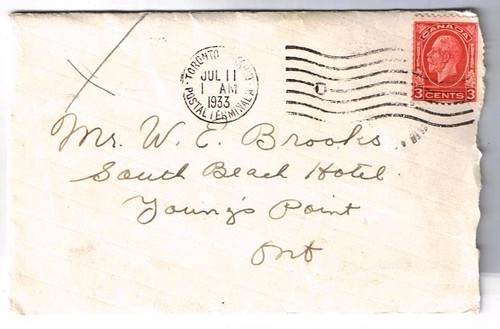 TORONTO
JUL 11
1 AM
1933
POSTAL TERMINAL A
CANADA
3 CENTS 3
Mr. W. E. Brooks
South Beach Hotel.
Young's Point
Ont